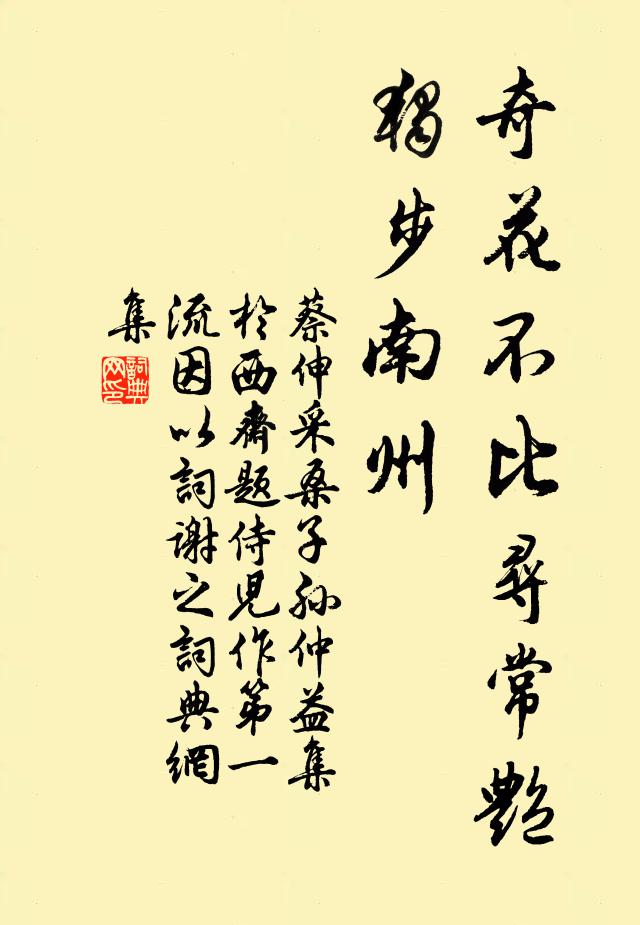 奇花不比尋常艷
獨步南州
蔡伸采桑子孙仲益集
於西齋题侍児作第一
流因以詞谢之詞典網
集
詞典
网印